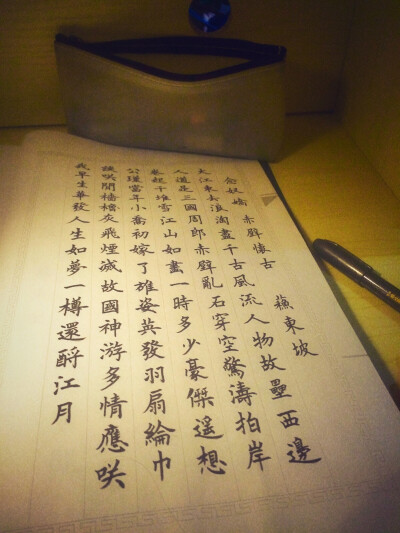 念奴嬌 赤壁懷古 蘇東坡
大江東去浪淘盡千古風流人物故壘西邊
人道是三國周郎赤壁亂石穿空驚濤拍岸
卷起千堆雪江山如畫一時多少豪傑遙想
公瑾當年小喬初嫁了雄姿英發羽扇綸巾
談咲間檣櫓灰飛煙滅故國神游多情應咲
我早生華發人生如夢一樽還酹江月